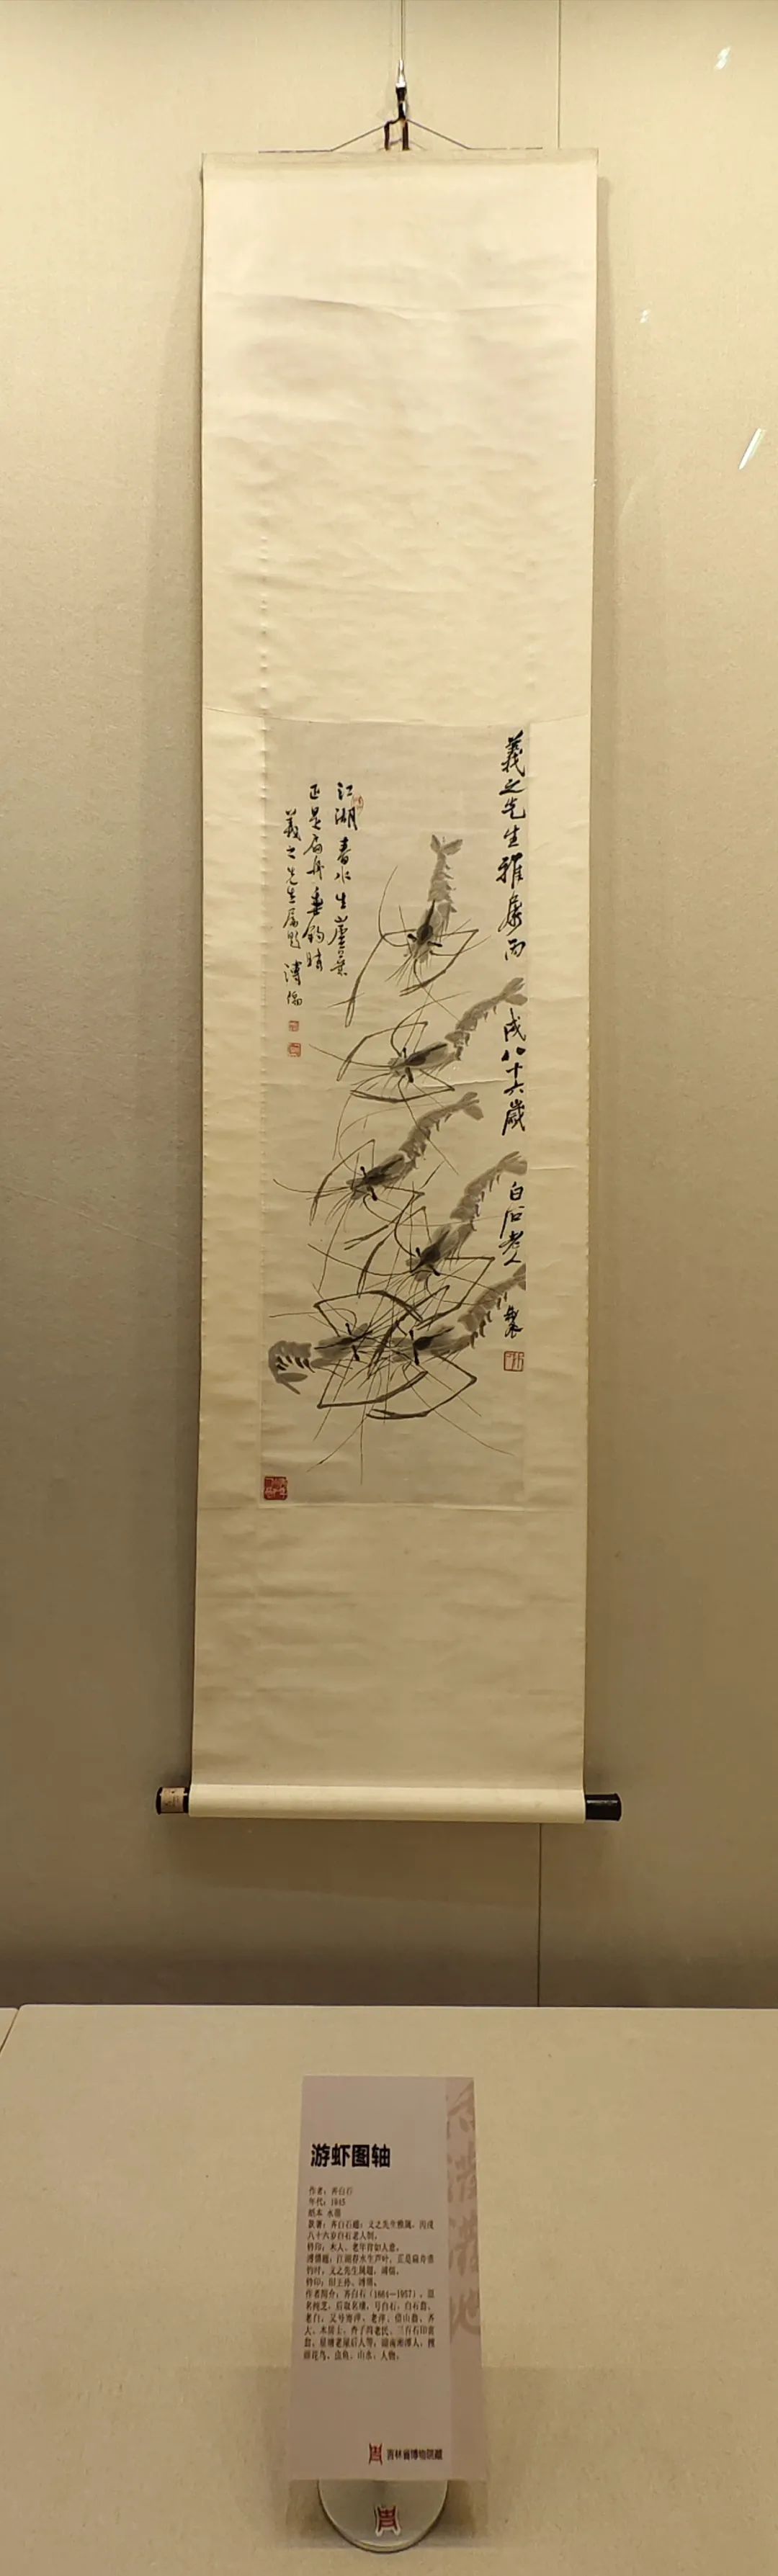 義之先生雅屬丙戌八十六歲白石老人製
江湖春水生蘆葉
正是扁舟垂釣時
義之先生屬題 溥儒
游虾图轴
作者：齐白石
年代：1945
纸本 水墨
款署：齐白石题：义之先生雅属，丙戌
八十六岁白石老人制。
钤印：木人、老年肯如人意。
溥儒题：江湖春水生芦叶，正是扁舟垂
钓时，义之先生属题，溥儒。
钤印：旧王孙、溥儒。
作者简介：齐白石（1864—1957），原
名纯芝，后改名璜，号白石、白石翁、
老白，又号寄萍、老萍、借山翁、齐
大、木居士、杏子坞老民、三百石印富
翁、星塘老屋后人等，湖南湘潭人，擅
画花鸟、虫鱼、山水、人物。
吉林省博物院藏